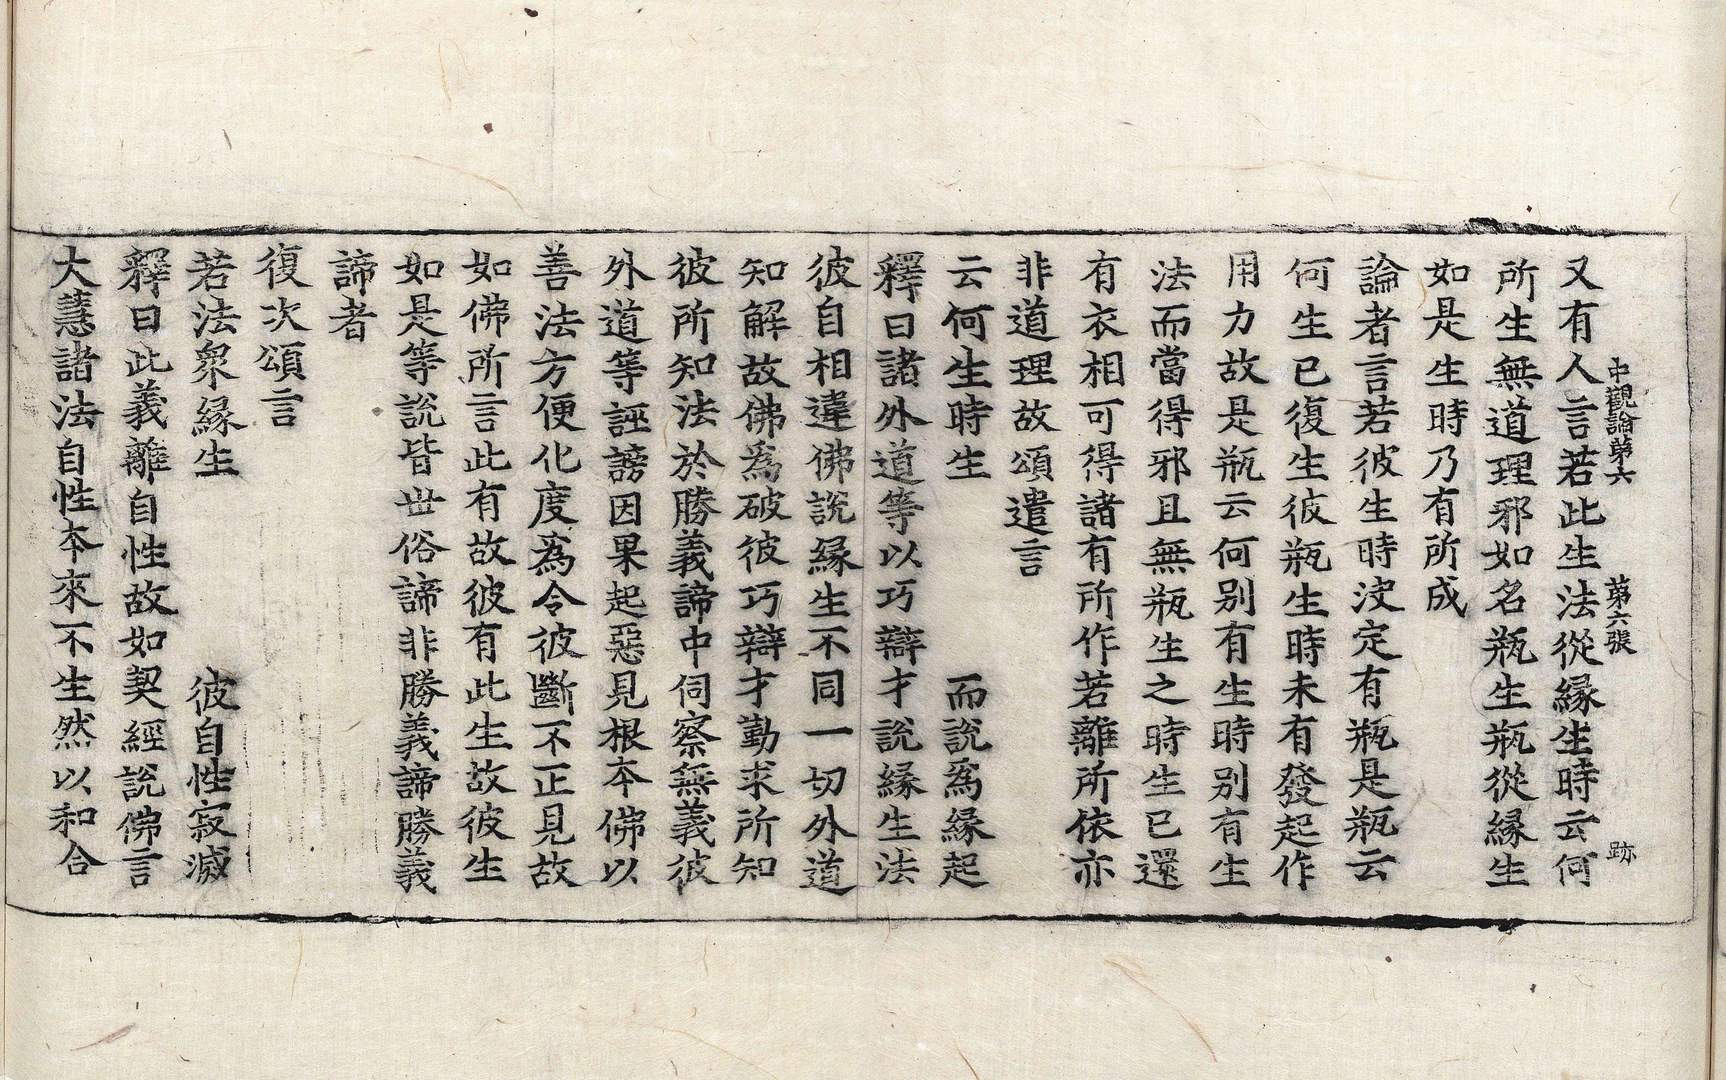 中觀論第六　第六張　跡
又有人言若此生法從緣生生時云何
所生無道理邪如名瓶生瓶從緣生
如是生時乃有所成
論者言若彼生時決定有瓶是瓶云
何生已復生彼瓶生時未有發起作
用力故是瓶云何別有生時別有生
法而當得邪且無瓶生之時生已還
有衣相可得諸有所作若離所依亦
非道理故頌遣言
云何生時生　而說爲緣起
釋曰諸外道等以巧辯才說緣生法
彼自相違佛說緣生不同一切外道
知解故佛爲破彼巧辯才勤求所知
彼所知法於勝義諦中伺察無義彼
外道等誣謗因果起惡見根本佛以
善法方便化度爲令彼斷不正見故
如佛所言此有故彼有此生故彼生
如是等說皆世俗諦非勝義諦勝義
諦者
復次頌言
若法衆緣生　彼自性寂滅
釋曰此義離自性故如契經說佛言
大慧諸法自性本來不生然以和合